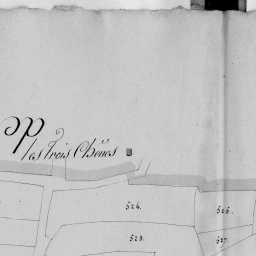 les trois Chênes
524.
525.
523.
527.